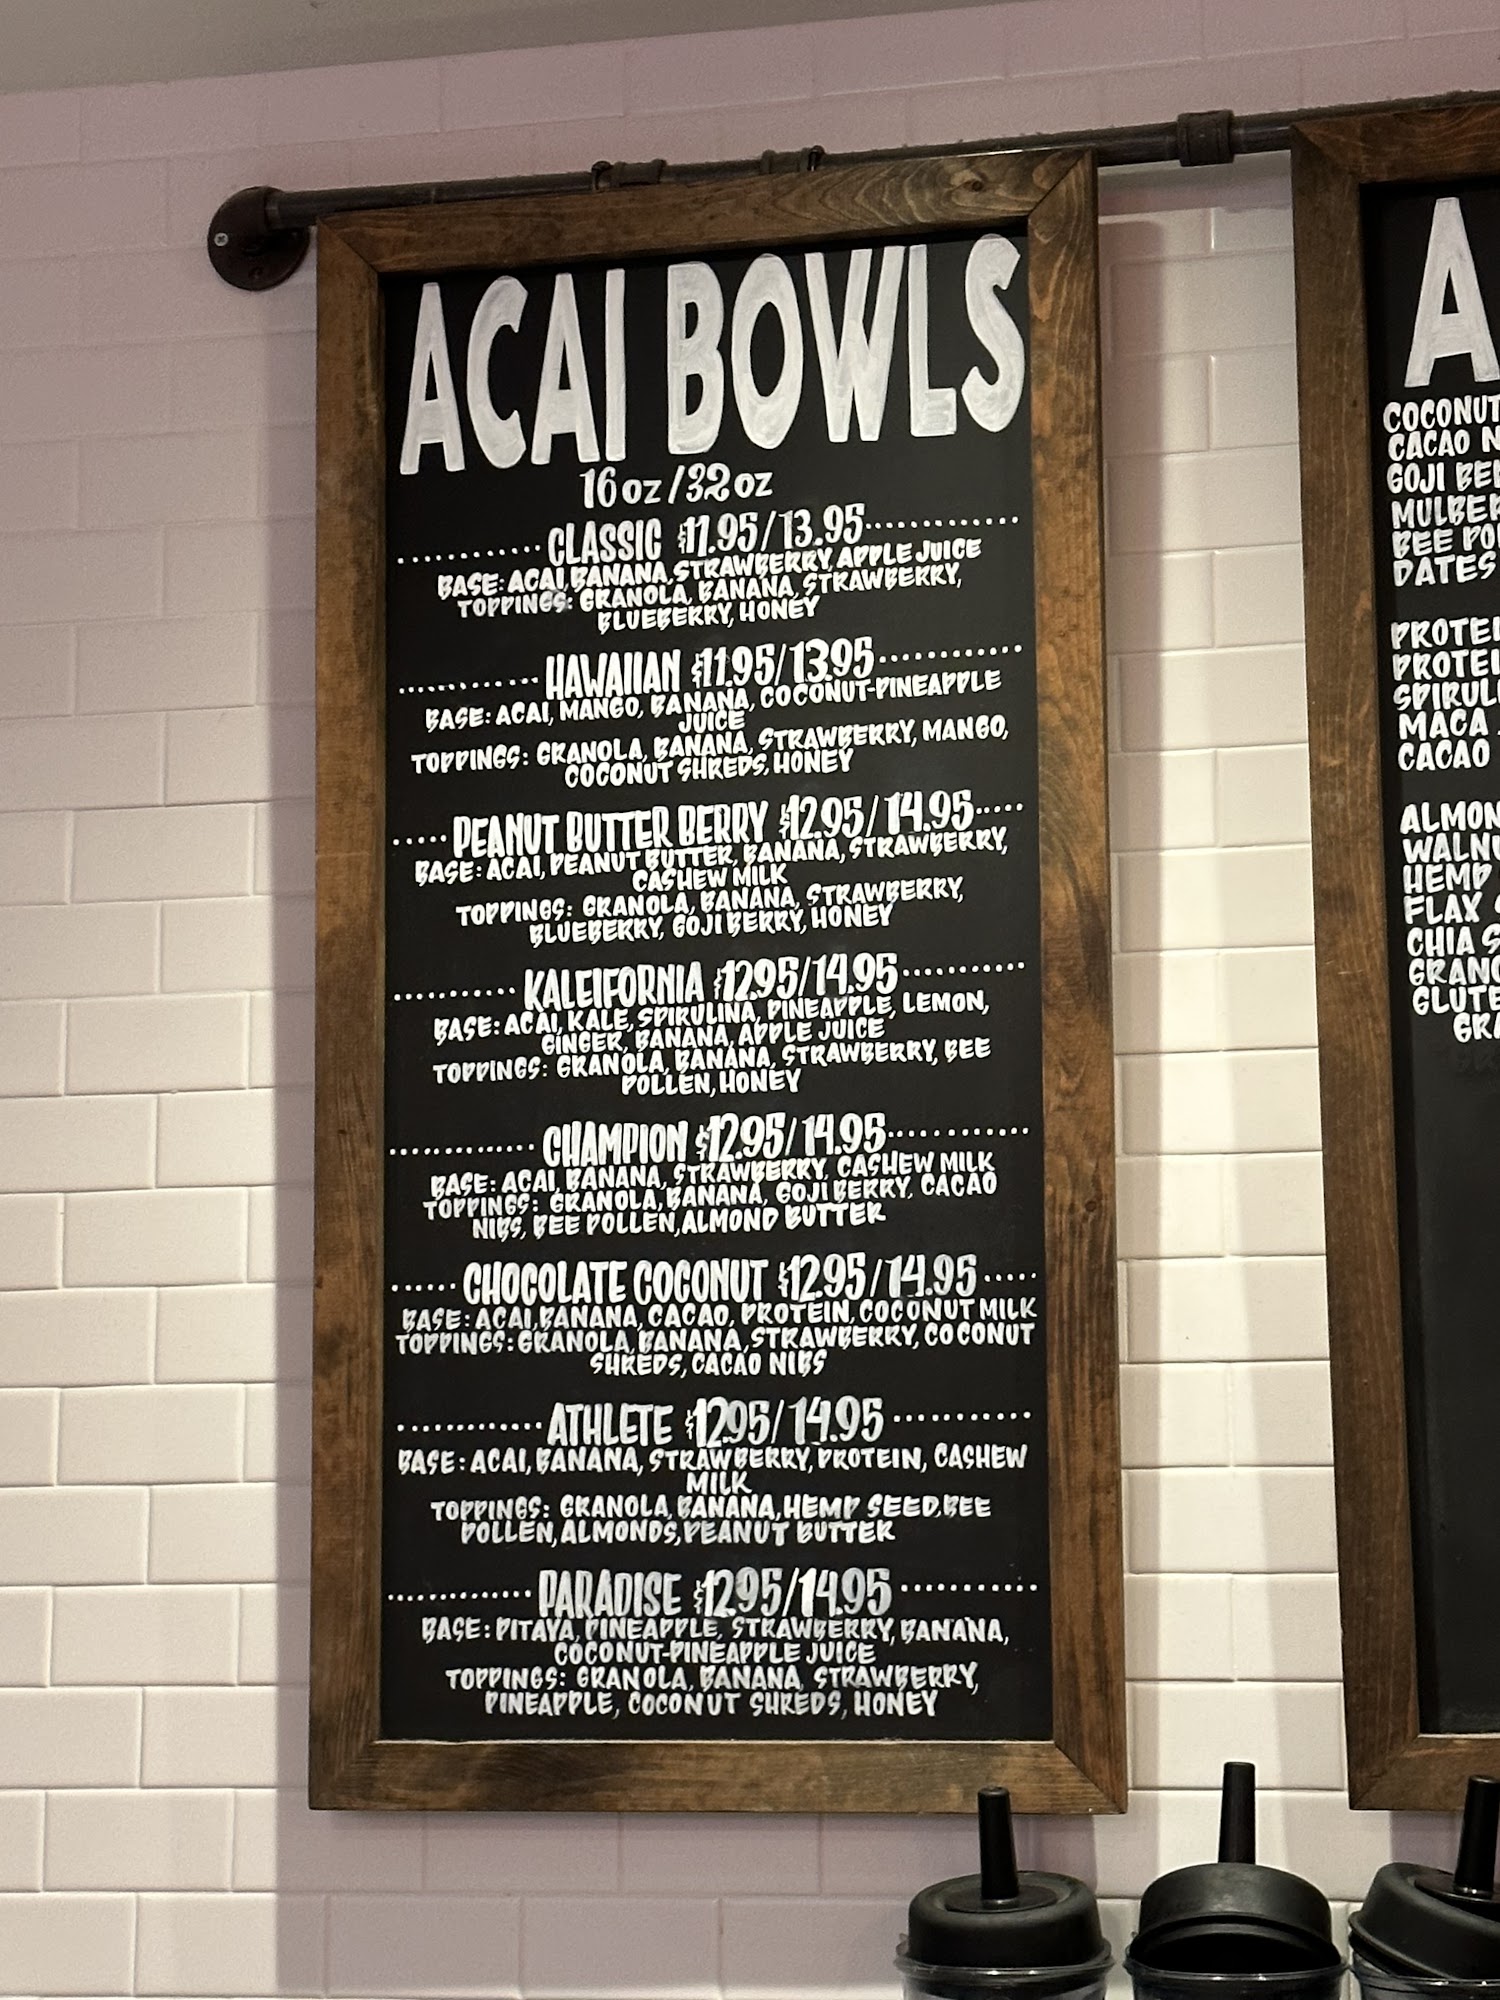 ACAI BOWLS
16 oz / 32 oz
CLASSIC $11.95/13.95
BASE: ACAI, BANANA, STRAWBERRY, APPLE JUICE
TOPPINGS: GRANOLA, BANANA, STRAWBERRY,
BLUEBERRY, HONEY
HAWAIIAN $11.95/13.95
BASE: ACAI, MANGO, BANANA, COCONUT-PINEAPPLE
JUICE
TOPPINGS: GRANOLA, BANANA, STRAWBERRY, MANGO,
COCONUT SHREDS, HONEY
PEANUT BUTTER BERRY $12.95/14.95
BASE: ACAI, PEANUT BUTTER, BANANA, STRAWBERRY,
CASHEW MILK
TOPPINGS: GRANOLA, BANANA, STRAWBERRY,
BLUEBERRY, GOJI BERRY, HONEY
KALEIFORNIA $12.95/14.95
BASE: ACAI, KALE, SPIRULINA, PINEAPPLE, LEMON,
GINGER, BANANA, APPLE JUICE
TOPPINGS: GRANOLA, BANANA, STRAWBERRY, BEE
POLLEN, HONEY
CHAMPION $12.95/14.95
BASE: ACAI, BANANA, STRAWBERRY, CASHEW MILK
TOPPINGS: GRANOLA, BANANA, GOJI BERRY, CACAO
NIBS, BEE POLLEN, ALMOND BUTTER
CHOCOLATE COCONUT $12.95/14.95
BASE: ACAI, BANANA, CACAO, PROTEIN, COCONUT MILK
TOPPINGS: GRANOLA, BANANA, STRAWBERRY, COCONUT
SHREDS, CACAO NIBS
ATHLETE $12.95/14.95
BASE: ACAI, BANANA, STRAWBERRY, PROTEIN, CASHEW
MILK
TOPPINGS: GRANOLA, BANANA, HEMP SEED, BEE
POLLEN, ALMONDS, PEANUT BUTTER
PARADISE $12.95/14.95
BASE: PITAYA, PINEAPPLE, STRAWBERRY, BANANA,
COCONUT-PINEAPPLE JUICE
TOPPINGS: GRANOLA, BANANA, STRAWBERRY,
PINEAPPLE, COCONUT SHREDS, HONEY
A
COCONUT
CACAO N
GOJI BE
MULBER
BEE PO
DATES
PROTEI
PROTEI
SPIRUL
MACA
CACAO
ALMON
WALNU
HEMP
FLAX
CHIA S
GRANO
GLUTE
GRA